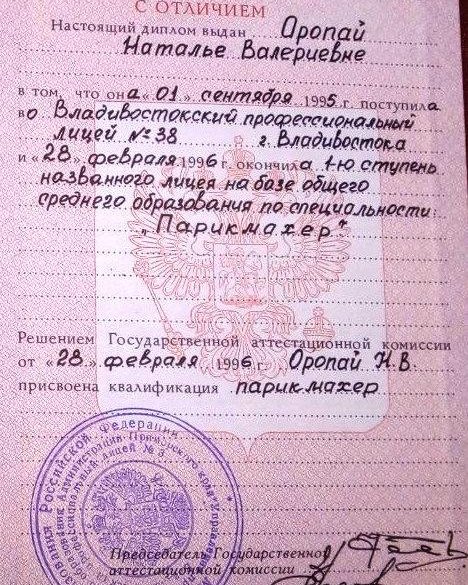 С ОТЛИЧИЕМ
Настоящий диплом выдан Оропай
Наталье Валериевне
в том, что она „01" сентября 1995 г. поступила
во Владивостокский профессиональный
лицей №38 г. Владивостока
и „28" февраля 1996 г. окончила 1-ю ступень
названного лицея на базе общего
среднего образования по специальности:
„Парикмахер"
Решением Государственной аттестационной комиссии
от „28" февраля 1996 г. Оропай Н.В.
присвоена квалификация парикмахер
Российской Федерации
Администрации Приморского края
лицей №3
Председатель Государственной
аттестационной комиссии